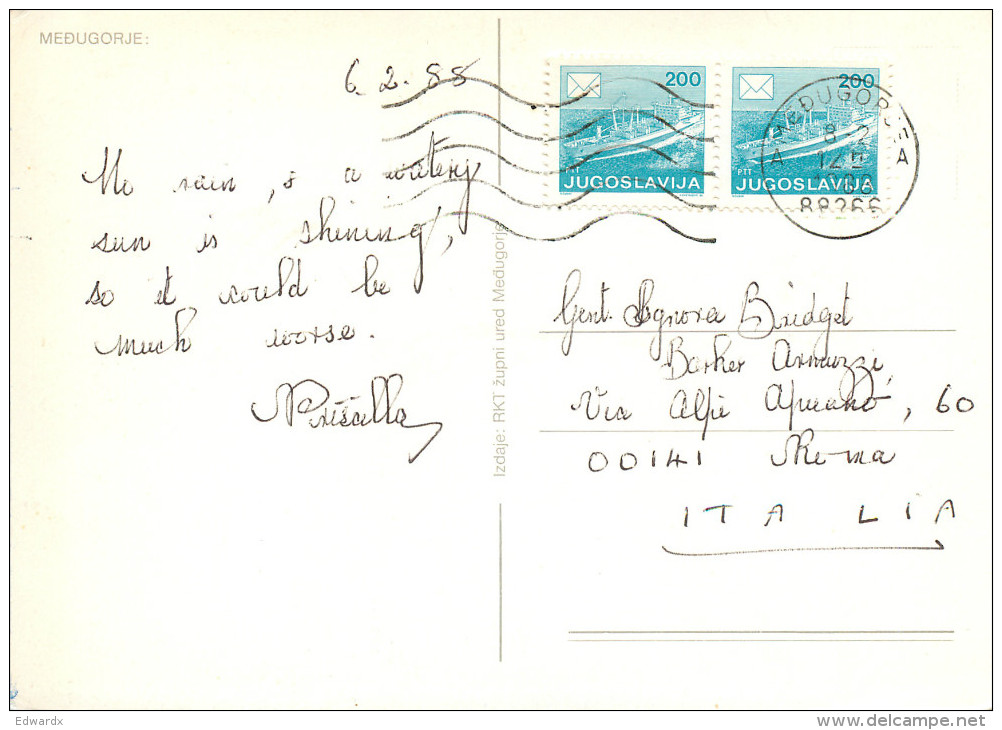 MEĐUGORJE:
6.2.88
No rain, & a watery
sun is shining,
so it could be
much worse.
Priscilla
Izdaje: RKT župni ured Međugorje
200
PTT
JUGOSLAVIJA
200
PTT
JUGOSLAVIJA
MEĐUGORJE
A A
8-2
88266
Gent. Signora Bridget
Barker Arnuzzi,
Via Alpi Apuane, 60
00141 Roma
ITALIA
Edwardx
delcampe.net